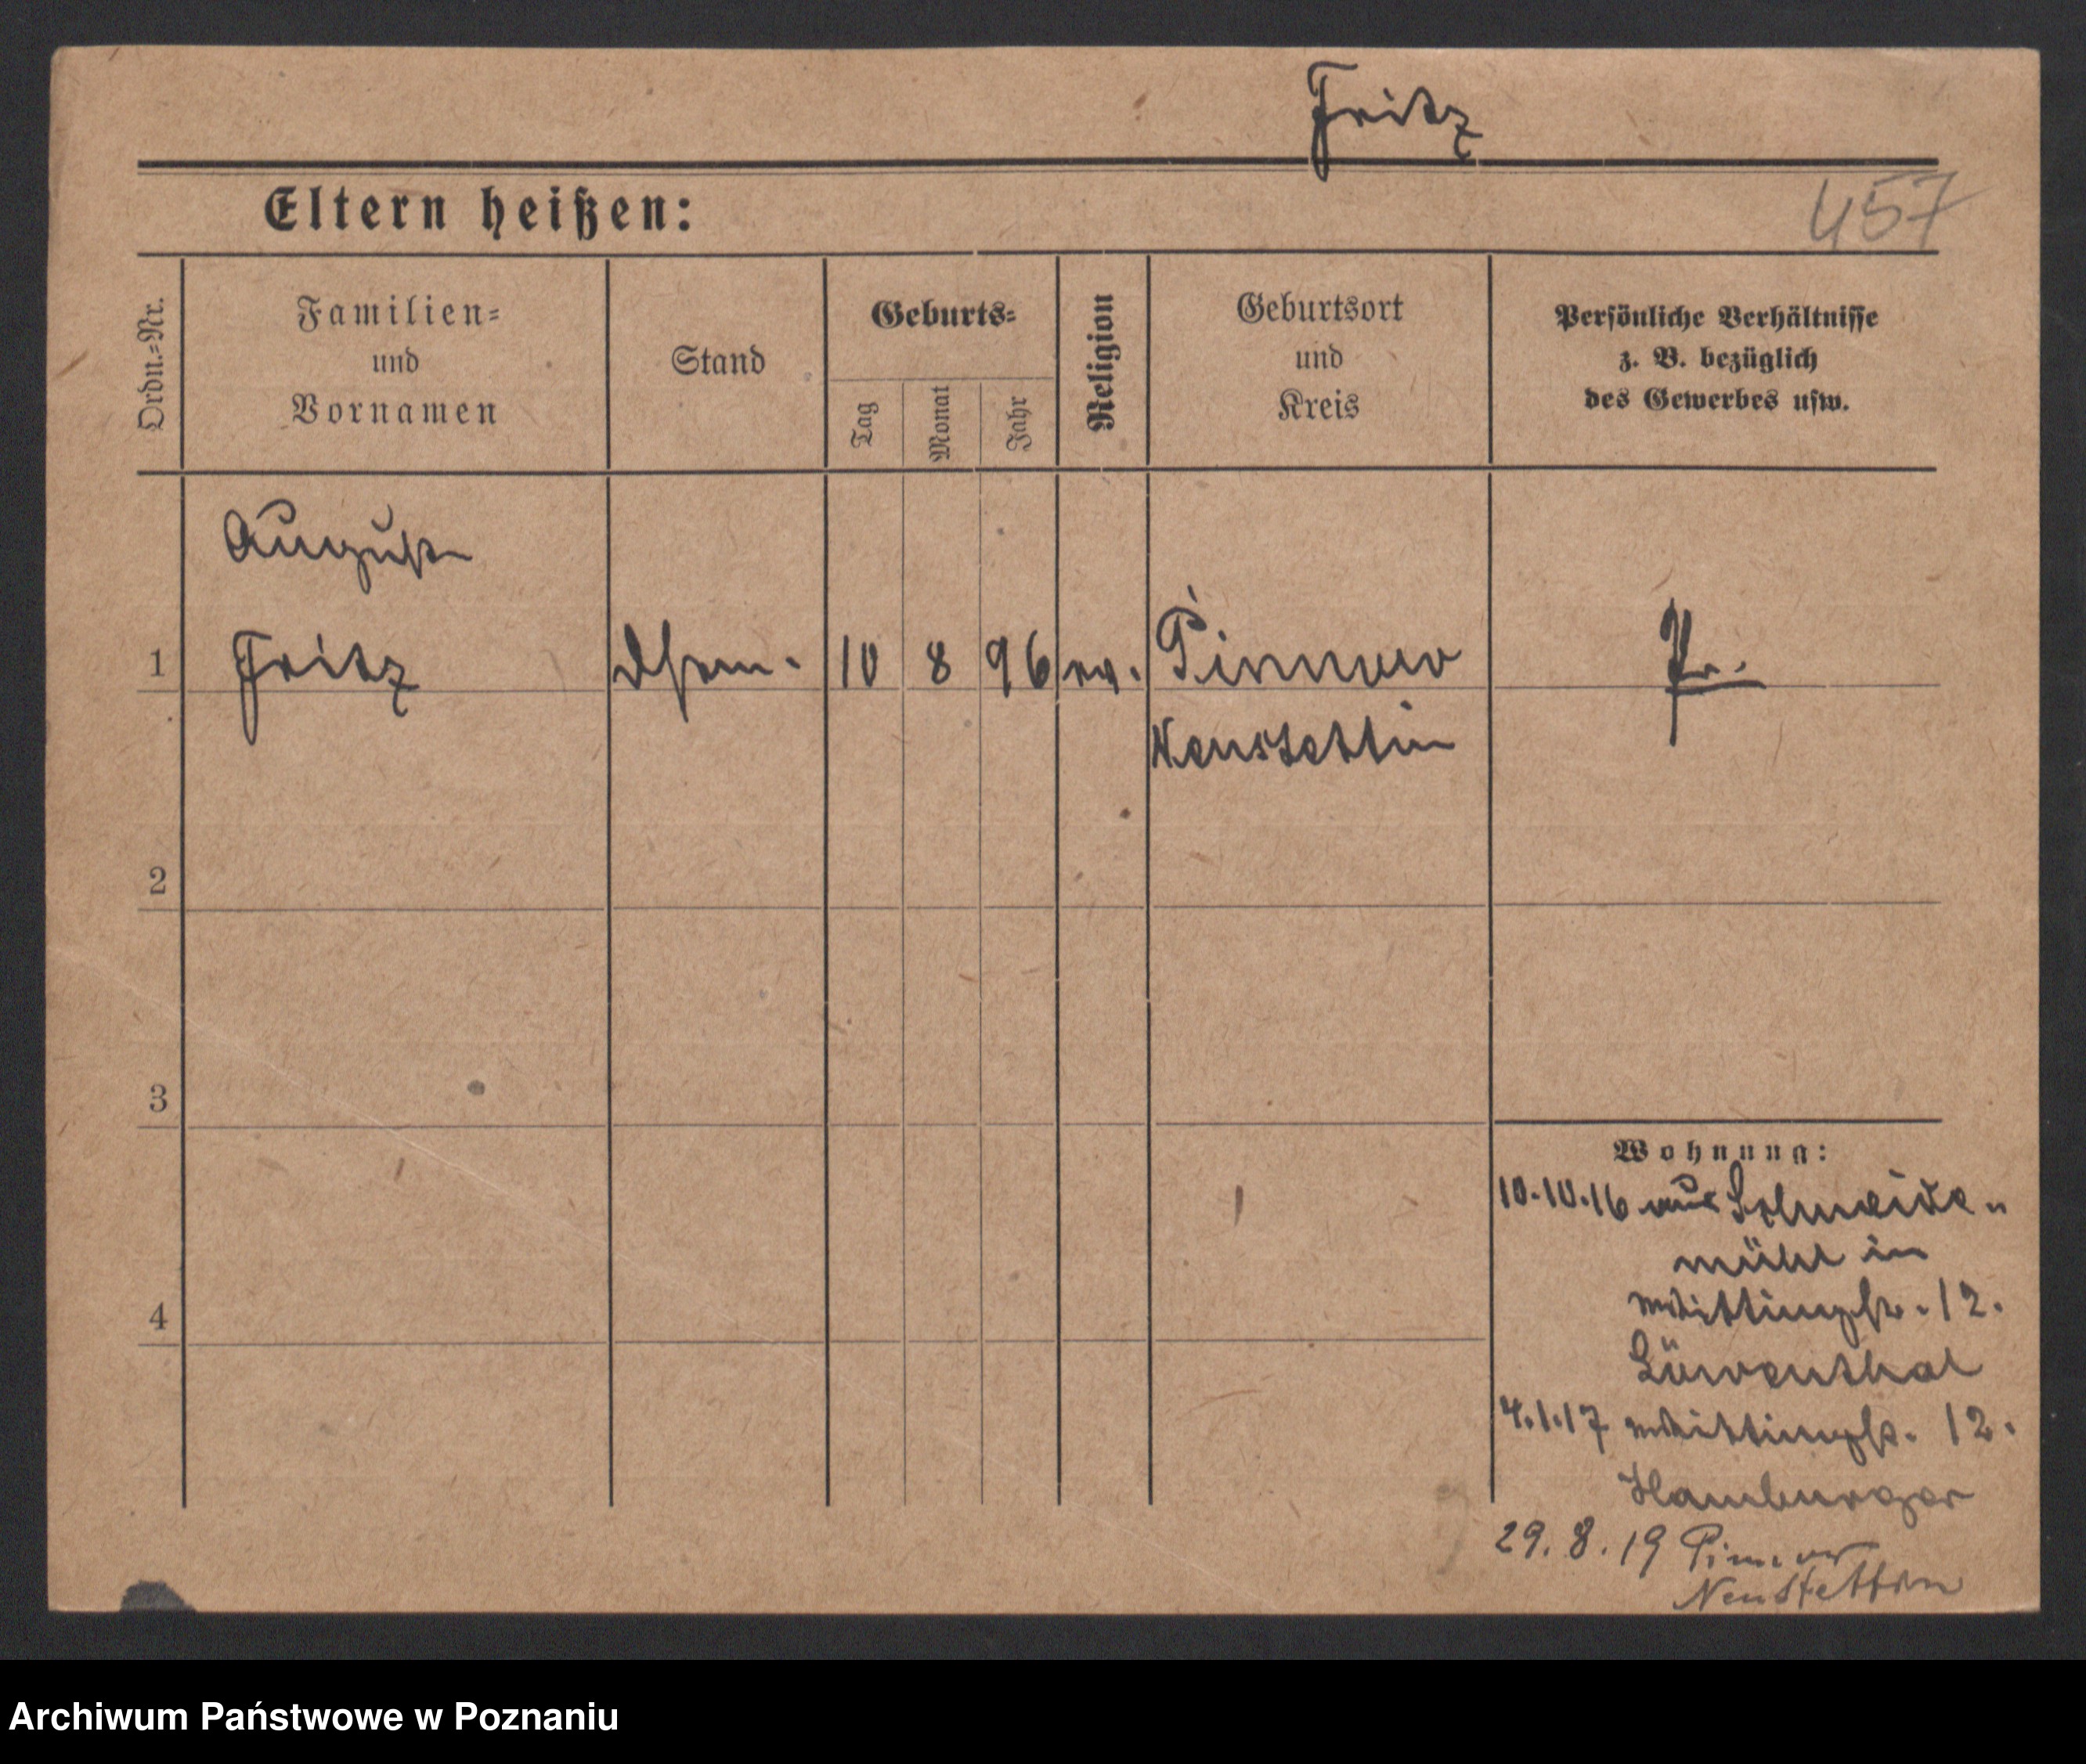 Fritz
Eltern heißen:
457
Ordn.=Nr.
Familien=
und
Vornamen
Stand
Geburts=
Tag
Monat
Jahr
Religion
Geburtsort
und
Kreis
Persönliche Verhältnisse
z. B. bezüglich
des Gewerbes usw.
August
1 Fritz 10 8 96 ev. Pinnow Pr.
Neustettin
2
3
Wohnung:
10.10.16 aus Schneide-
mühl in
12.
4
Löwenthal
4.1.17 12.
Hamburger
29.8.19 Pinnow
Neustettin
Archiwum Państwowe w Poznaniu